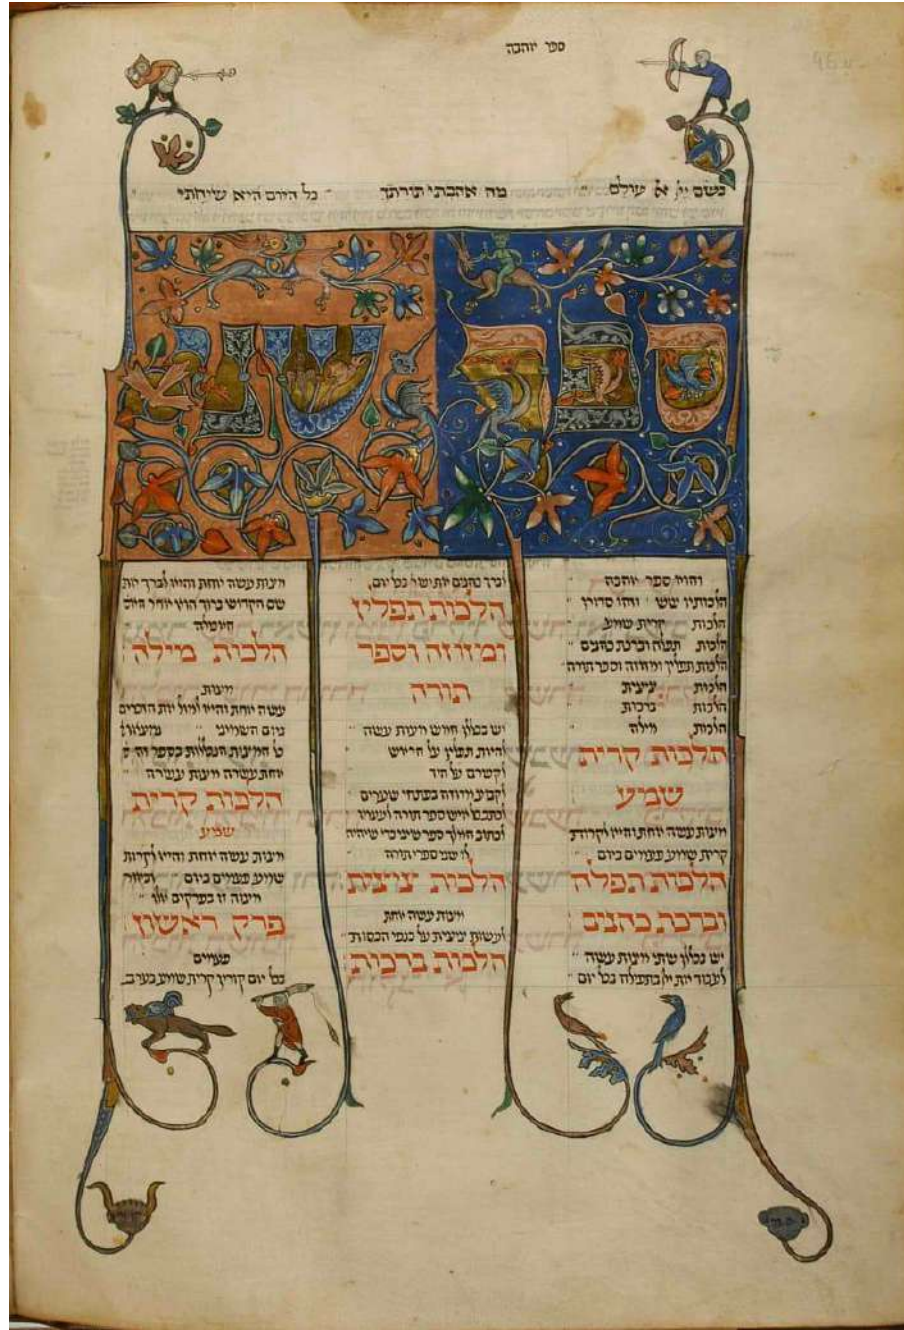 ספר אהבה
בשם יי אל עולם מה אהבתי תורתך כל היום היא שיחתי
ספר שני
והוא ספר אהבה
הלכותיו שש וזהו סדורן
הלכות קרית שמע
הלכות תפלה וברכת כהנים
הלכות תפלין ומזוזה וספר תורה
הלכות ציצית
הלכות ברכות
הלכות מילה
הלכות קרית
שמע
מצות עשה אחת והיא לקרות
קרית שמע פעמים ביום
הלכות תפלה
וברכת כהנים
יש בכללן שתי מצות עשה
לעבוד את יי בתפילה בכל יום
לברך כהנים את ישראל בכל יום
הלכות תפלין
ומזוזה וספר
תורה
יש בכללן חמש מצות עשה
להיות תפלין על הראש
לקשרם על היד
לקבוע מזוזה בפתחי שערים
לכתב כל איש ספר תורה לעצמו
לכתוב המלך ספר שיני כדי שיהיה
לו שני ספרי תורה
הלכות ציצית
מצות עשה אחת
לעשות ציצית על כנפי הכסות
הלכות ברכות
מצות עשה אחת והיא לברך את
שם הקדוש ברוך הוא אחר
אכילה
הלכות מילה
מצות
עשה אחת והיא למול את הזכרים
ביום השמיני נמצאו
כל המצות הנכללות בספר זה
אחת עשרה מצות עשה
הלכות קרית
שמע
מצות עשה אחת והיא לקרות
שמע פעמים ביום וביאור
מצוה זו בפרקים אלו
פרק ראשון
פעמים
בכל יום קורין קרית שמע בערב